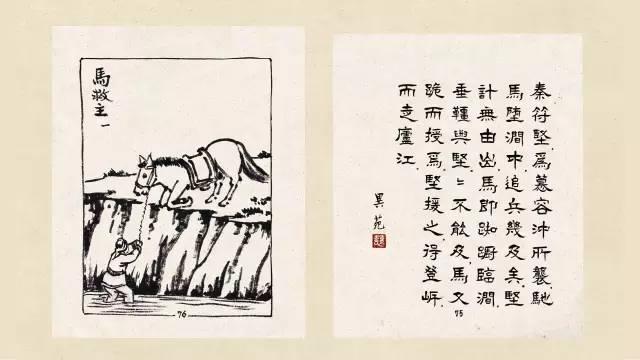 秦符堅爲慕容沖所襲馳
馬墮澗中追兵幾及矣堅
計無由出馬即踟躕臨澗
垂鞚與堅〻不能及馬又
跪而授焉堅援之得登岸
而走廬江
異苑
75
馬救主
一
76